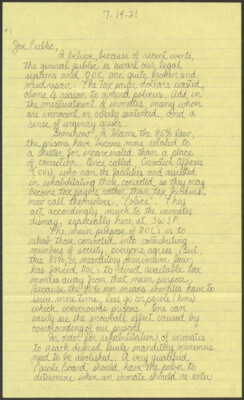 7-19-21
#1
Joe Public,
I believe, because of recent events,
the general public is aware our legal
systems and D.O.C. are quite broken and
need repair. The tax payer dollars wasted,
alone is reason to amend policies. Add in
the mistreatment of inmates, many whom
are innocent or overly sentenced, and a
sense of urgency exists.
Somehow I blame the 85% law,
the prisons have become more related to
a shelter for incarcerated than a place
of correction. Once called Correction Officers
(C.O's), who ran the facilities and assisted
in rehabilitating those convicted, so they may
become tax payers rather than tax patrons,
now call themselves, "Police". They
act accordingly, much to the inmates
dismay, especially here at
The main purpose of D.O.C's is to
rehab those convicted, into contributing
members of society, everyone agrees. But,
this 85%, or mandatory minimum law,
has forced DOC's to direct available tax
monies away from that main purpose,
because the 85% law means inmates have to
serve more time, less go on parole (home)
which overcrowds prisons. One can
easily see the snowball effect caused by
overcrowding our prisons.
In order for rehabilitation of inmates
to reach desired levels, mandatory minimums
need to be abolished. A very qualified
Parole Board should have the power to
determine when an inmate should re-enter